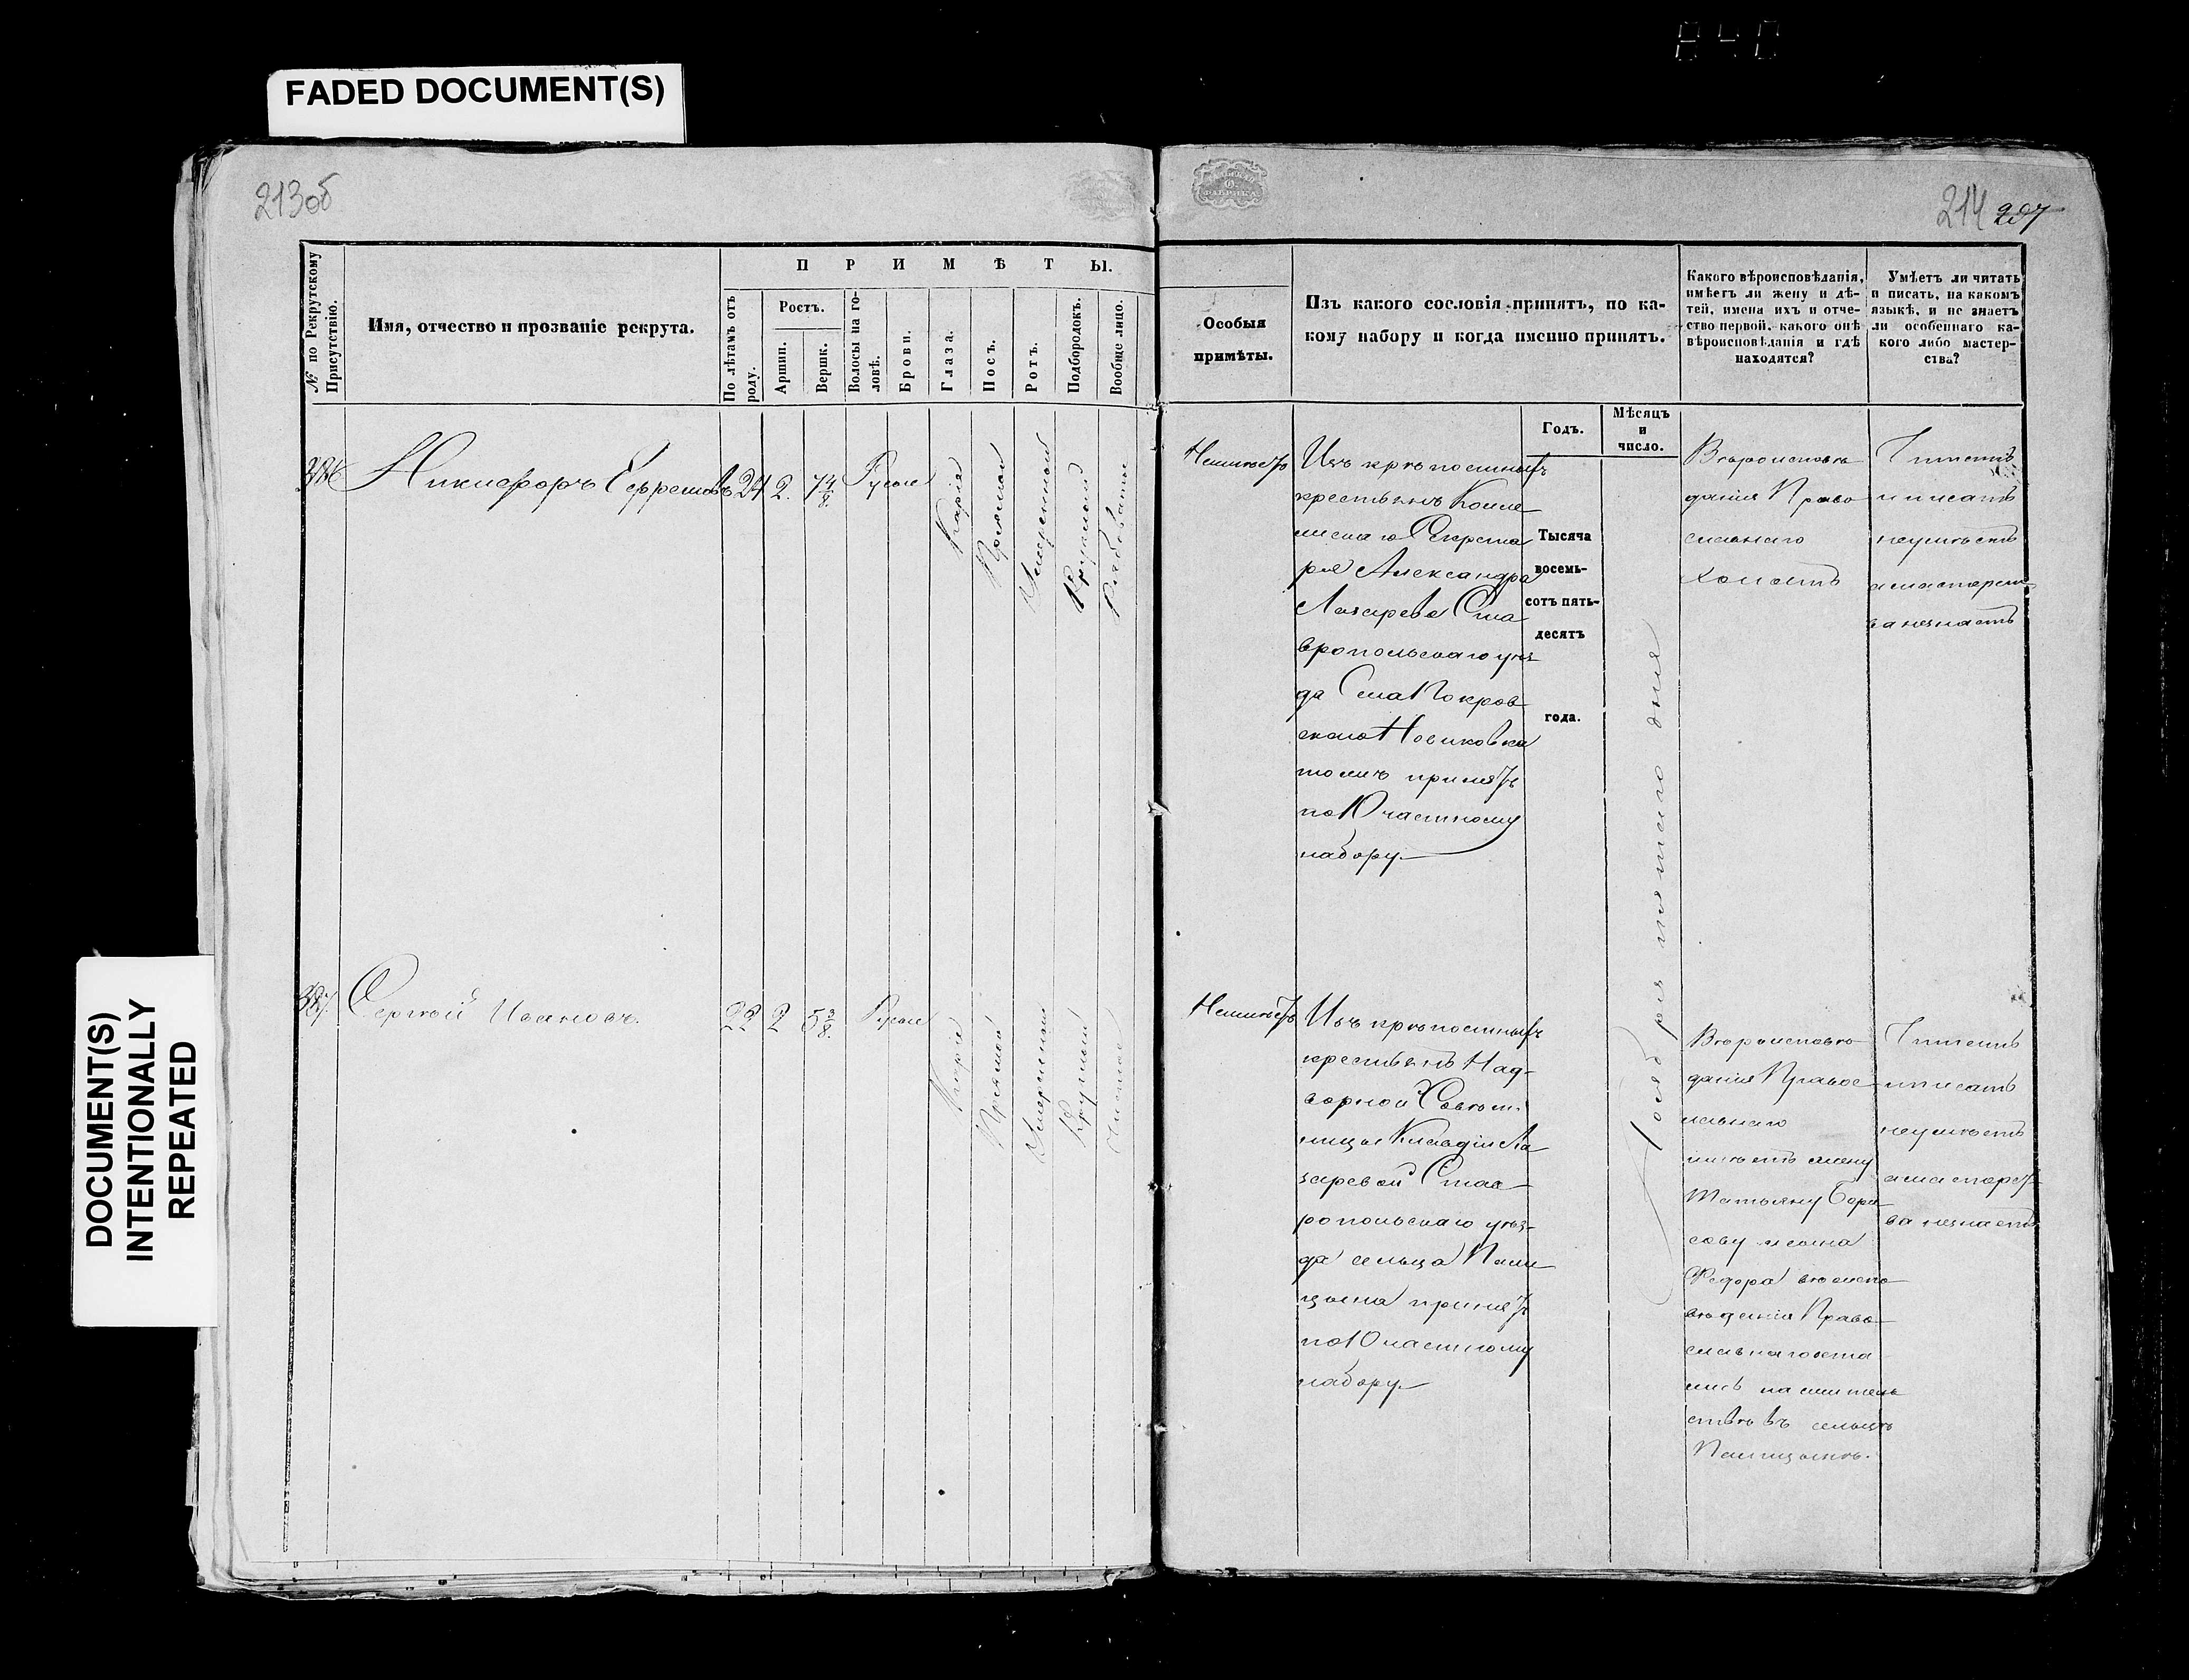 FADED DOCUMENT(S)
DOCUMENT(S)
INTENTIONALLY
REPEATED
213об
214 207
№ по Рекрутскому
Присутствію.
Имя, отчество и прозваніе рекрута.
ПРИМѢТЫ.
По лѣтамъ отъ
роду.
Ростъ.
Аршин.
Вершк.
Волосы на го-
ловѣ.
Брови.
Глаза.
Носъ.
Ротъ.
Подбородокъ.
Вообще лицо.
Особыя
примѣты.
Изъ какого сословія принятъ, по ка-
кому набору и когда именно принятъ.
Годъ.
Мѣсяцъ
и
число.
Какого вѣроисповѣданія,
имѣетъ ли жену и дѣ-
тей, имена ихъ и отче-
ство первой, какого онѣ
вѣроисповѣданія и гдѣ
находятся?
Умѣетъ ли читать
и писать, на какомъ
языкѣ, и не знаетъ
ли особеннаго ка-
кого либо мастер-
ства?
386
Никифоръ Ефремовъ
24
2.
7 4/8.
Русые
Каріе
Прямой
Умѣренный
Круглый
Рябоватое
Неимѣетъ
Изъ крѣпостныхъ
крестьянъ Колле
жскаго Секрета
ря Александра
Лазарева Ста
вропольскаго уѣз
да Села Покров
скаго Новиковка
тожъ принятъ
по 10 частному
набору
Тысяча
восемь-
сотъ пять-
десятъ
года.
Ноября пятаго дня
Вѣроисповѣ
данія Право
славнаго
холостъ
Читать
и писать
неумѣетъ
а мастерст
ва незнаетъ
387.
Сергѣй Ивановъ.
22
2
5 3/8.
Русые
Каріе
Прямой
Умѣренный
Круглый
Чистое
Неимѣетъ
Изъ крѣпостныхъ
крестьянъ Над-
ворной Совѣт.
ницы Клавдіи Ла
заревой Став-
ропольскаго уѣз-
да сельца
принятъ
по 10 частному
набору
Вѣроисповѣ
данія Правос
лавнаго
имѣетъ жену
Татьяну Бори
сову и сына
Федора вѣроиспо
вѣданія Право
славнаго оста
лись на житель
ствѣ въ сельцѣ
Читать
и писать
неумѣетъ
а мастерст
ва незнаетъ